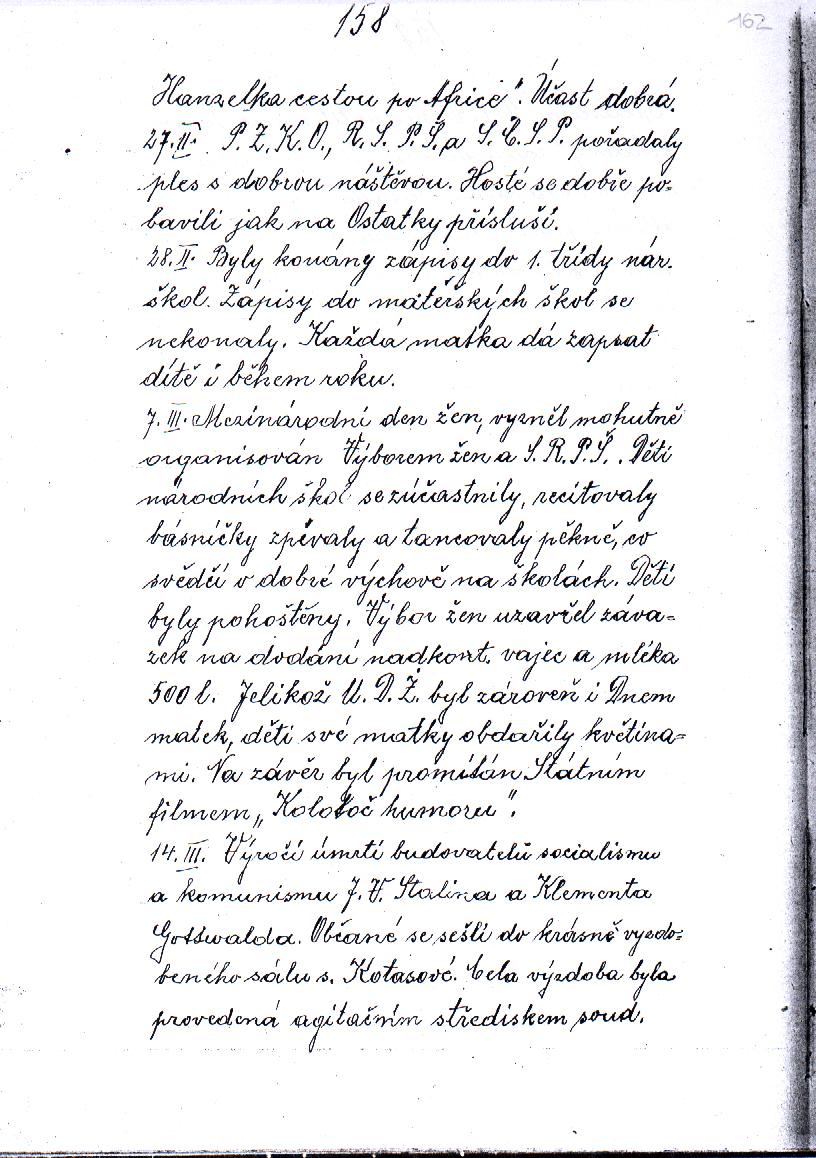 158
162
Hanzelka cestou po Africe". Účast dobrá.
27.II. P.Z.K.O., R.S.P.Š.a S.Č.S.P. pořadaly
ples s dobrou náštěvou. Hosté se dobře po-
bavili jak na Ostatky přísluší.
28.II. Byly konány zápisy do 1. třídy nár.
škol. Zápisy do mateřských škol se
nekonaly. Každá matka dá zapsat
dítě i během roku.
7.III. Mezinárodní den žen, vyzněl mohutně
organisován Výborem žen a S.R.P.Š.. Děti
národních škol se zúčastnily, recitovaly
básničky zpívaly a tancovaly pěkně, co
svědčí o dobré výchově na školách. Děti
byly pohoštěny. Výbor žen uzavřel záva-
zek na dodání nadkont. vajec a mléka
500 l. Jelikož M.D.Ž. byl zároveň i Dnem
matek, děti své matky obdařily květina-
mi. Na závěr byl promítán Státním
filmem „Kolotoč humoru".
14.III. Výročí úmrtí budovatelů socialismu
a komunismu J.V. Stalina a Klementa
Gottwalda. Občané se sešli do krásně vyzdo-
beného sálu s. Kotasové. Cela výzdoba byla
provedená agitačním střediskem soud.